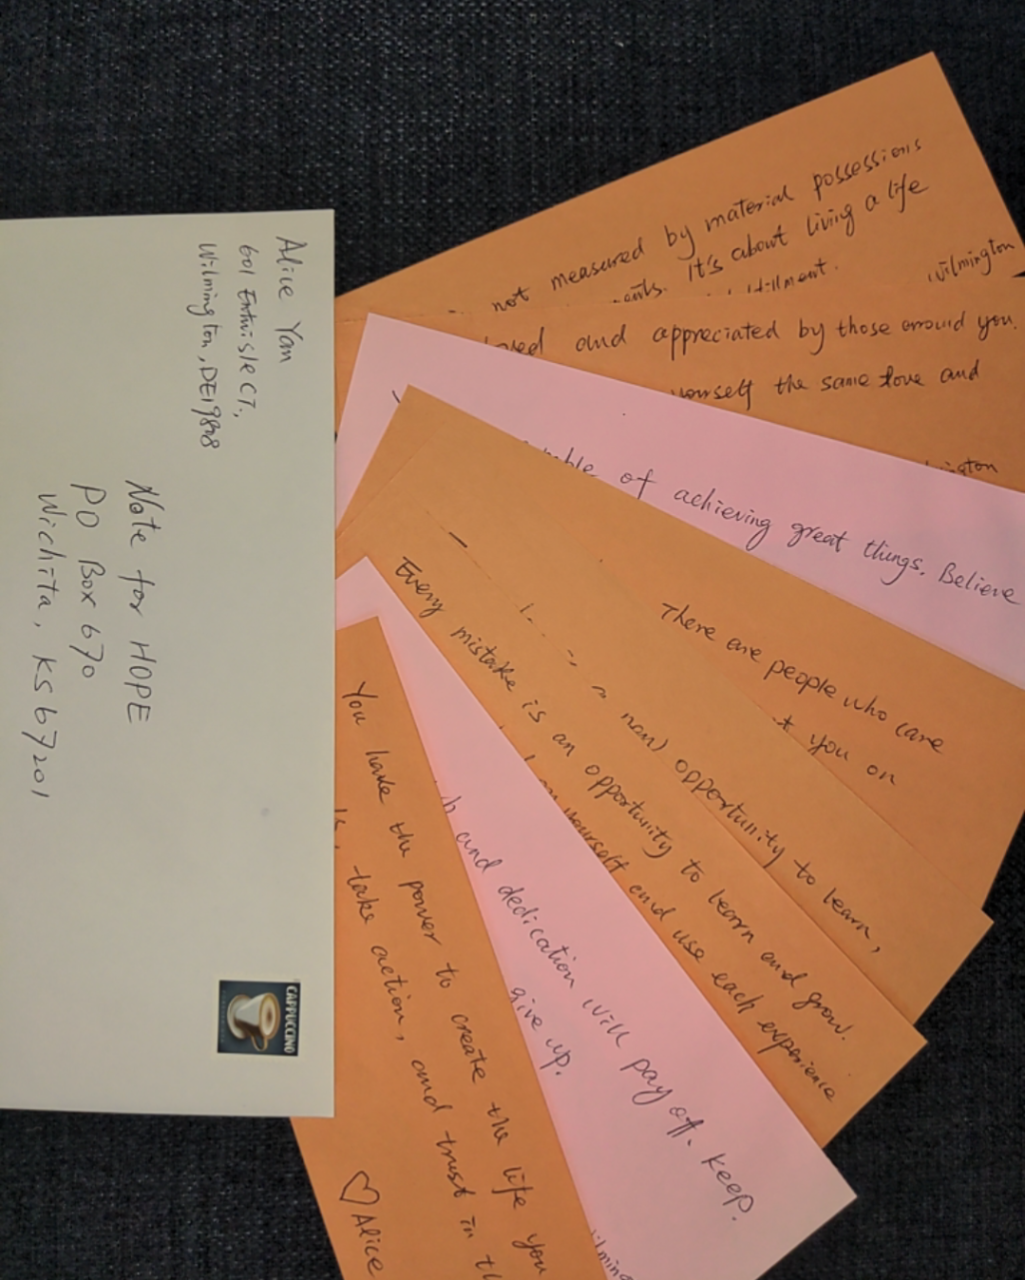 Alice Yan
601 Entwisle CT.,
Wilmington, DE 19808
Note for HOPE
PO Box 670
Wichita, KS 67201
CAPPUCCINO
not measured by material possessions
It's about living a life
Wilmington
and appreciated by those around you.
yourself the same love and
of achieving great things. Believe
There are people who care
you on
opportunity to learn,
Every mistake is an opportunity to learn and grow.
yourself and use each experience
and dedication will pay off. Keep.
give up.
You have the power to create the life you
take action, and trust in
♡Alice